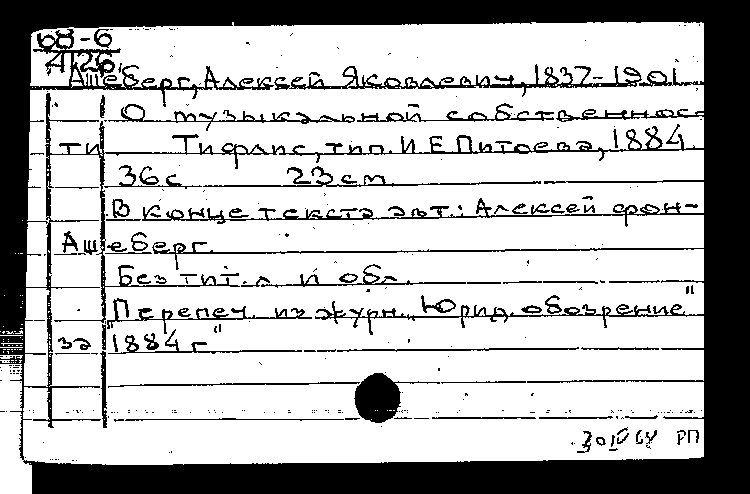 68-6
4126
Ашеберг, Алексей Яковлевич, 1837-1901
О музыкальной собственнос-
ти Тифлис, тип. И Е Питоева, 1884
36 с 23 см
В конце текста авт.: Алексей фон-
Ашеберг.
Без тит. л и обл.
"Перепеч. из журн. „Юрид. обозрение"
за 1884 г"
РП